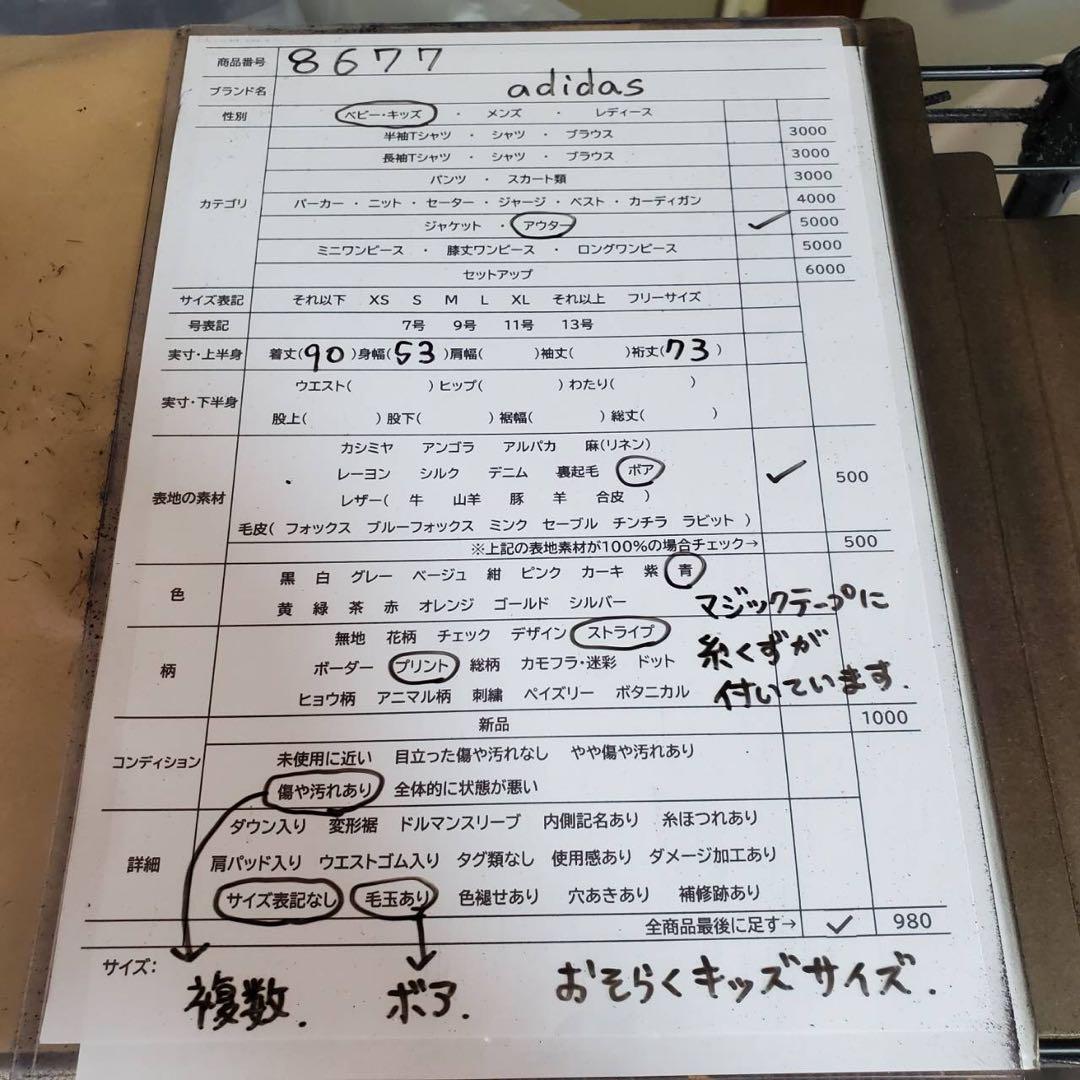 商品番号 8677
ブランド名 adidas
性別 ベビー・キッズ ・ メンズ ・ レディース
半袖Tシャツ ・ シャツ ・ ブラウス 3000
長袖Tシャツ ・ シャツ ・ ブラウス 3000
パンツ ・ スカート類 3000
カテゴリ パーカー ・ ニット ・ セーター ・ ジャージ ・ ベスト ・ カーディガン 4000
ジャケット ・ アウター ✓ 5000
ミニワンピース ・ 膝丈ワンピース ・ ロングワンピース 5000
セットアップ 6000
サイズ表記 それ以下 XS S M L XL それ以上 フリーサイズ
号表記 7号 9号 11号 13号
実寸・上半身 着丈(90)身幅(53)肩幅( )袖丈( )裄丈(73)
実寸・下半身 ウエスト( )ヒップ( )わたり( )
股上( )股下( )裾幅( )総丈( )
カシミヤ アンゴラ アルパカ 麻(リネン)
レーヨン シルク デニム 裏起毛 ボア ✓ 500
表地の素材 レザー( 牛 山羊 豚 羊 合皮 )
毛皮( フォックス ブルーフォックス ミンク セーブル チンチラ ラビット )
※上記の表地素材が100%の場合チェック→ 500
色 黒 白 グレー ベージュ 紺 ピンク カーキ 紫 青
黄 緑 茶 赤 オレンジ ゴールド シルバー
マジックテープに
糸くずが
付いています.
無地 花柄 チェック デザイン ストライプ
柄 ボーダー プリント 総柄 カモフラ・迷彩 ドット
ヒョウ柄 アニマル柄 刺繍 ペイズリー ボタニカル
新品 1000
コンディション 未使用に近い 目立った傷や汚れなし やや傷や汚れあり
傷や汚れあり 全体的に状態が悪い
ダウン入り 変形裾 ドルマンスリーブ 内側記名あり 糸ほつれあり
詳細 肩パッド入り ウエストゴム入り タグ類なし 使用感あり ダメージ加工あり
サイズ表記なし 毛玉あり 色褪せあり 穴あきあり 補修跡あり
全商品最後に足す→ ✓ 980
サイズ:
複数. ボア. おそらくキッズサイズ.